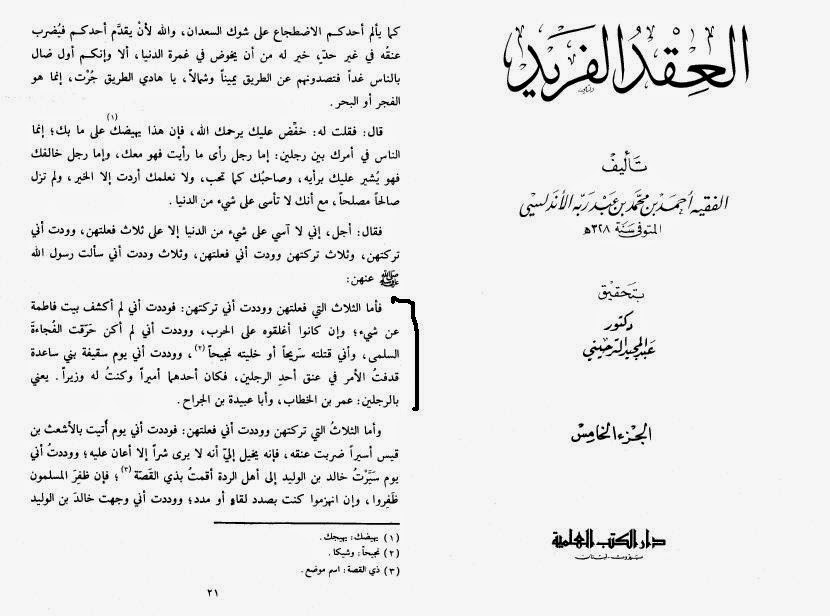 العِقْدُ الفَرِيد
تأليف
الفقيه أحمد بن محمد بن عبد ربه الأندلسي
المتوفى سنة ٣٢٨ھ
بتحقيق
دكتور
عبد المجيد الترحيني
الجزء الخامس
دار الكتب العلمية
بيروت - لبنان
كما يألم أحدكم الاضطجاع على شوك السعدان، والله لأنْ يقدَّم أحدكم فيُضرب
عنقُه في غير حدّ، خير له من أن يخوض في غمرة الدنيا، ألا وإنكم أول ضال
بالناس غداً فتصدونهم عن الطريق يميناً وشمالاً، يا هادي الطريق جُرْت، إنما هو
الفجر أو البحر.
قال: فقلت له: خفِّض عليك يرحمك الله، فإن هذا يهيضك(١) على ما بك؛ إنما
الناس في أمرك بين رجلين: إما رجل رأى ما رأيت فهو معك، وإما رجل خالفك
فهو يُشير عليك برأيه، وصاحبُك كما تحب، ولا نعلمك أردت إلا الخير، ولم تزل
صالحاً مصلحاً، مع أنك لا تأسى على شيء من الدنيا.
فقال: أجل، إني لا آسي على شيء من الدنيا إلا على ثلاث فعلتهن، وودت أني
تركتهن، وثلاث تركتهن وودت أني فعلتهن، وثلاث وددت أني سألت رسول الله
ﷺ عنهن:
فأما الثلاث التي فعلتهن ووددت أني تركتهن: فوددت أني لم أكشف بيت فاطمة
عن شيء؛ وإن كانوا أغلقوه على الحرب، ووددت أني لم أكن حَرّقت الفُجاءةَ
السلمى، وأني قتلته سَريحاً أو خليته نجيحاً(٢)، ووددت أني يوم سقيفة بني ساعدة
قدفتُ الأمر في عنق أحدِ الرجلين، فكان أحدهما أميراً وكنتُ له وزيراً. يعني
بالرجلين: عمر بن الخطاب، وأبا عبيدة بن الجراح.
وأما الثلاثُ التي تركتهن ووددت أني فعلتهن: فوددت أني يوم أُتيت بالأشعث بن
قيس أسيراً ضربت عنقه، فإنه يخيل إليّ أنه لا يرى شراً إلا أعان عليه؛ ووددتُ أني
يوم سَيَّرْتُ خالد بن الوليد إلى أهل الردة أقمتُ بذي القَصّة(٣)؛ فإن ظفِرَ المسلمون
ظَفِروا، وإن انهزموا كنت بصدد لقاءٍ أو مدد؛ ووددت أني وجهت خالدَ بن الوليد
(١) يهيضك: يهيجك.
(٢) نجيحاً: وشيكا.
(٣) ذي القصة: اسم موضع.
٢١